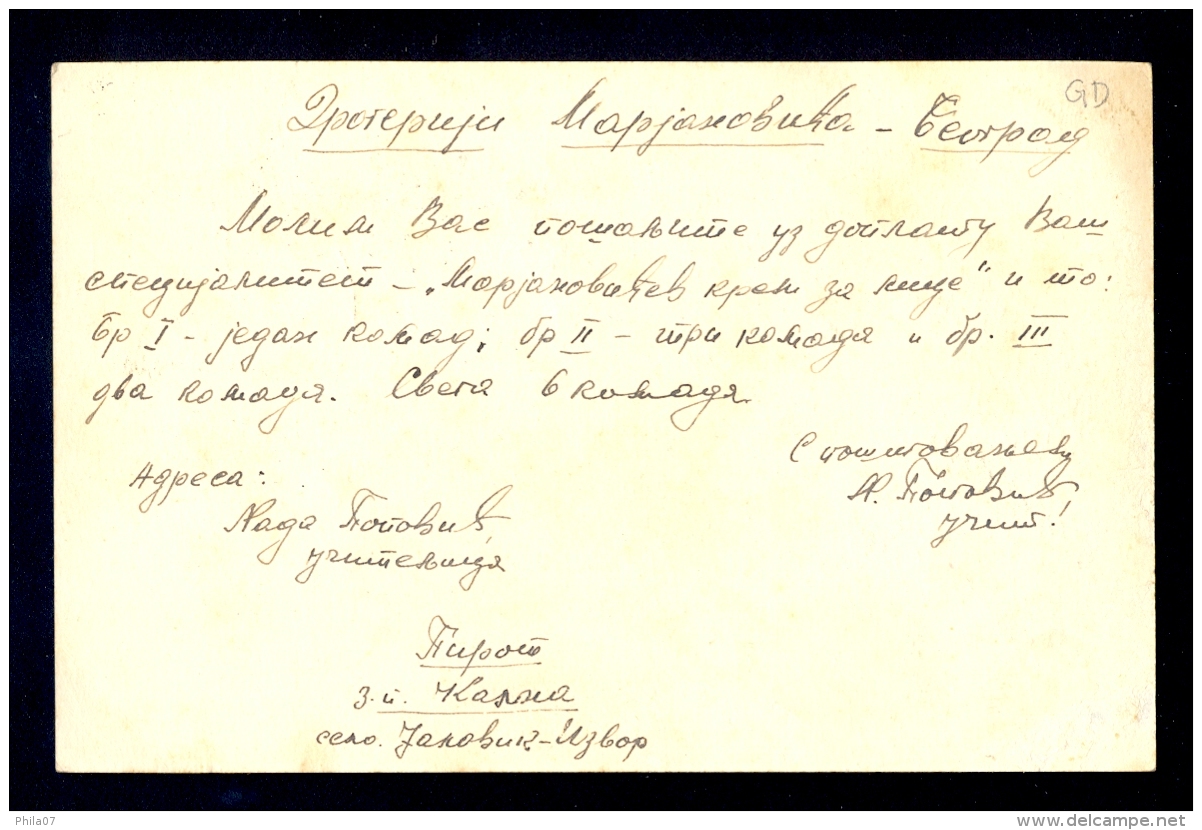 Дрогерији Марјановића – Београд
GD
Молим Вас пошаљите уз доплату Ваш
специјалитет – „Марјановићев крем за лице" и то:
бр I – један комад; бр II – три комада и бр. III
два комада. Свега 6 комада.
С поштовањем
Н. Поповић,
учит.!
Адреса:
Нада Поповић,
учитељица
Пирот
з.п. Кална
село. Јаловик-Извор
Phila07
www.delcampe.net